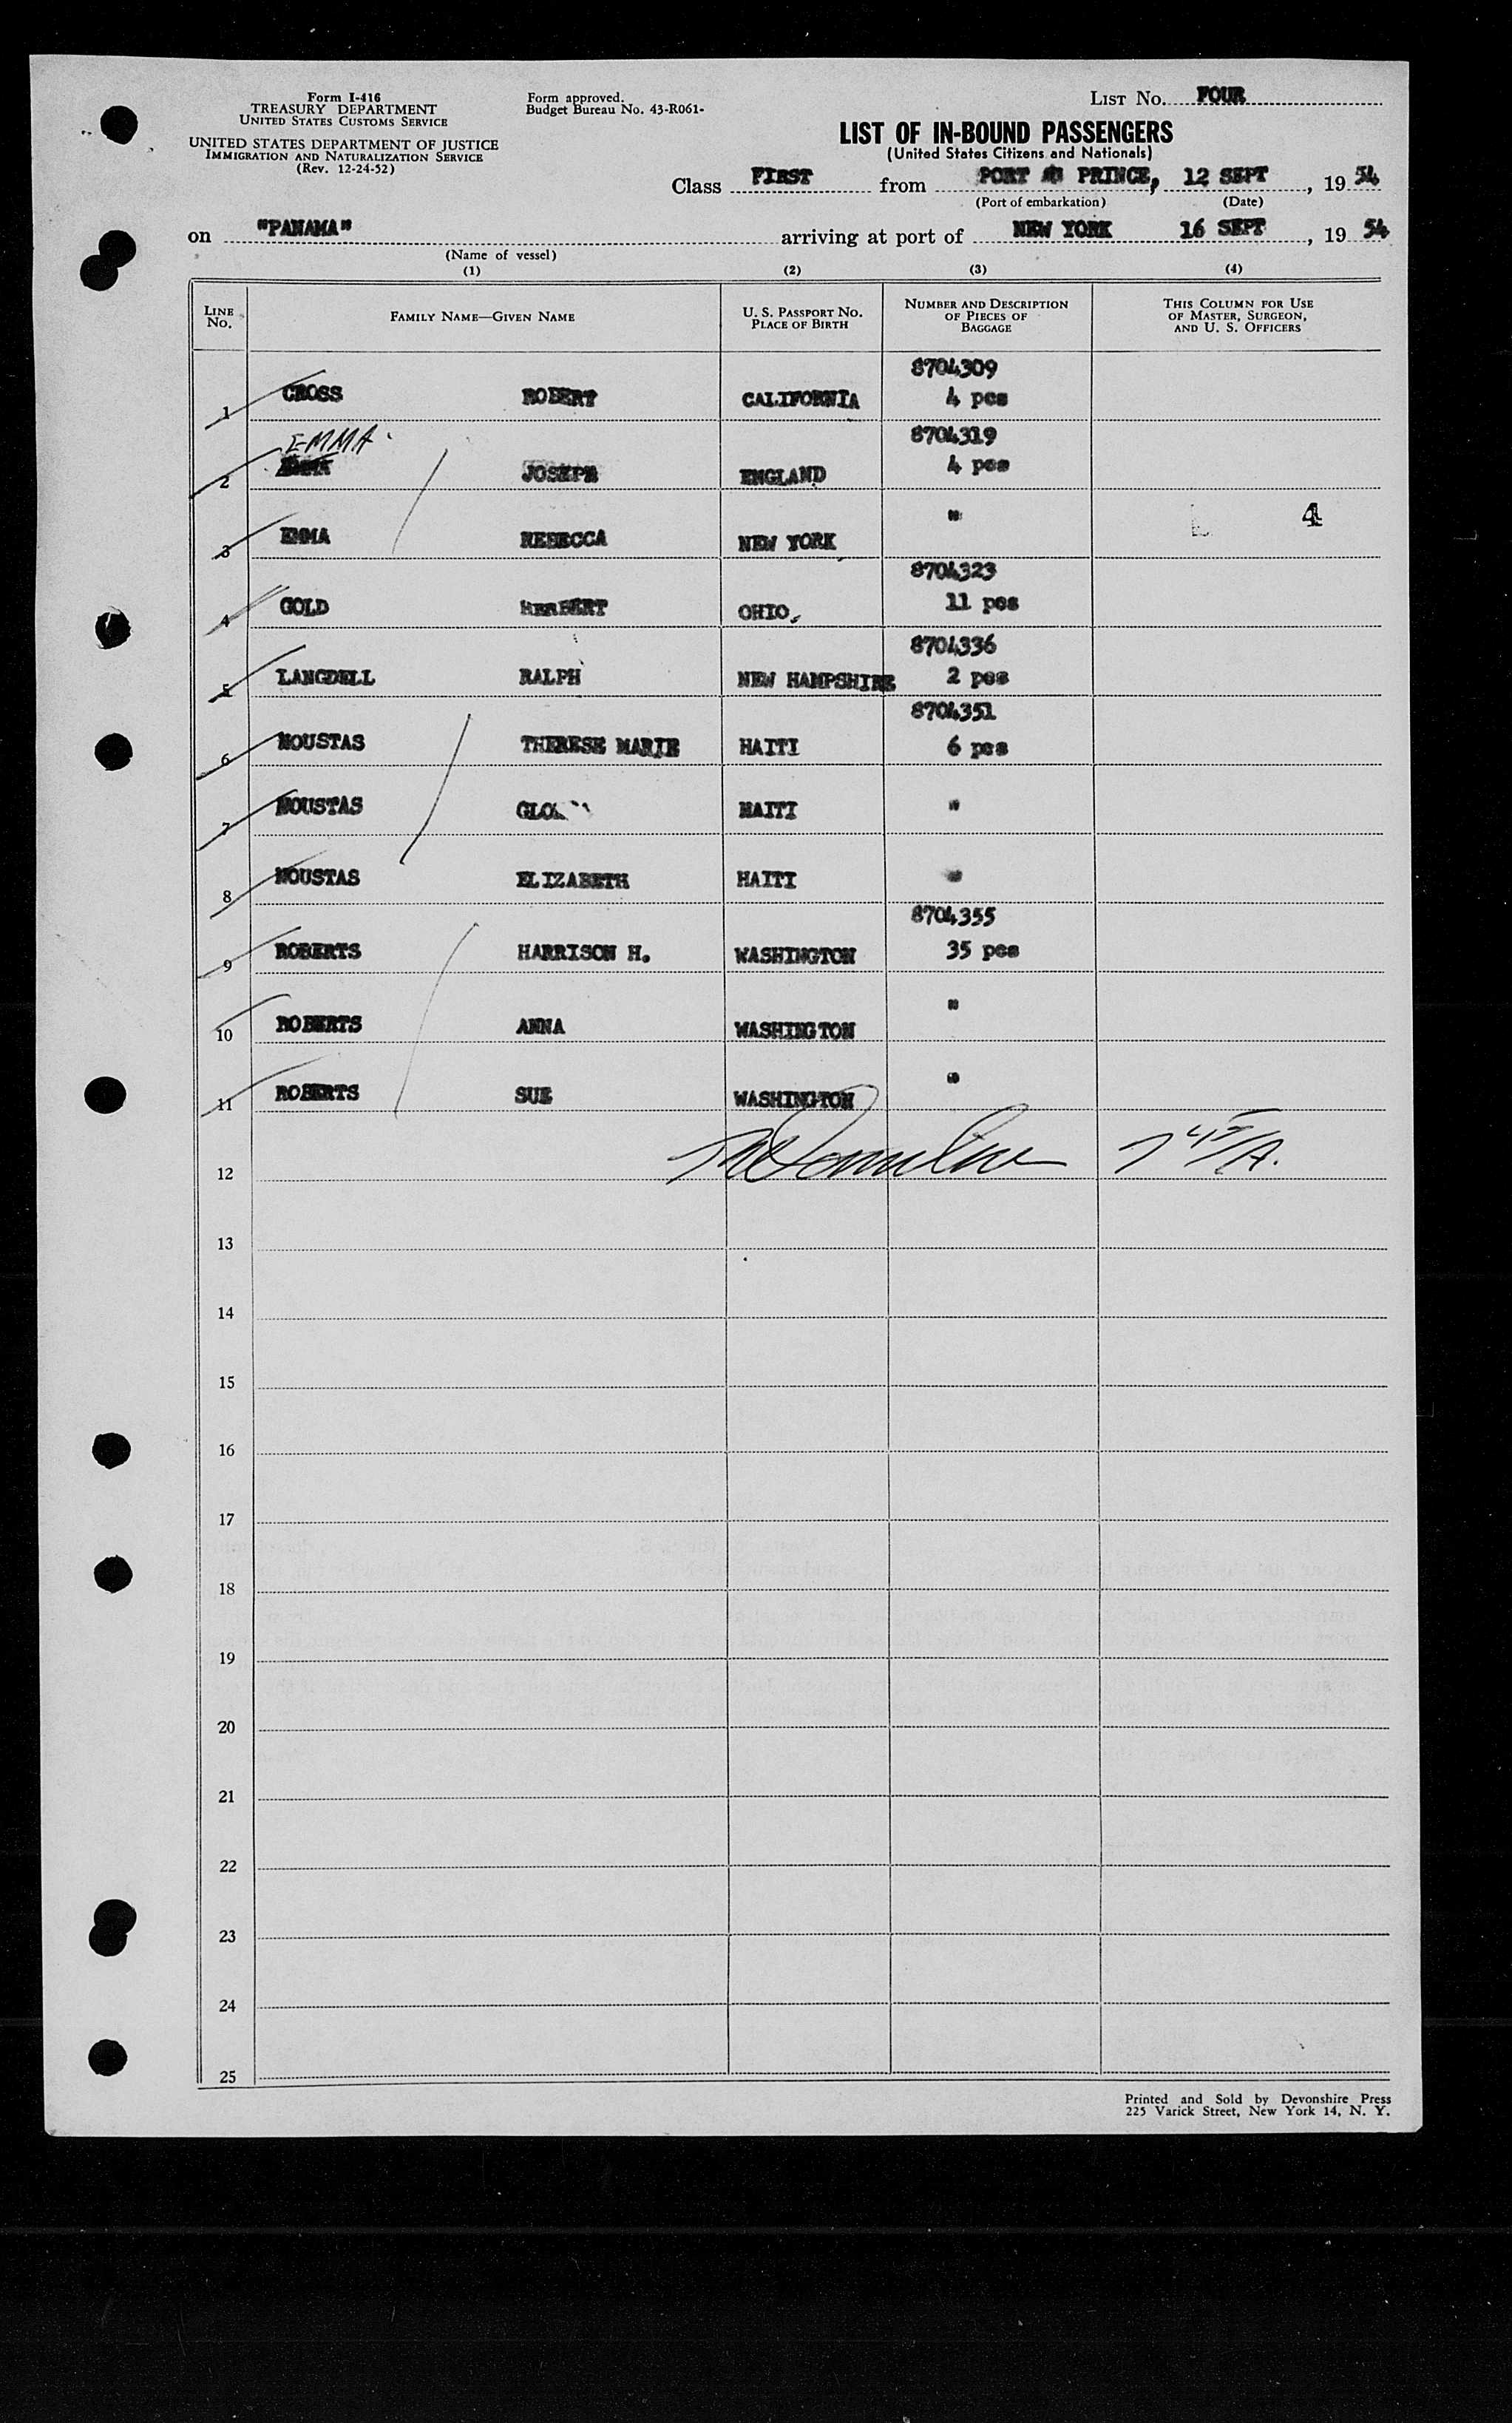 Form I-416
TREASURY DEPARTMENT
UNITED STATES CUSTOMS SERVICE
UNITED STATES DEPARTMENT OF JUSTICE
IMMIGRATION AND NATURALIZATION SERVICE
(Rev. 12-24-52)
Form approved.
Budget Bureau No. 43-R061-
LIST No. FOUR
LIST OF IN-BOUND PASSENGERS
(United States Citizens and Nationals)
Class FIRST from PORT AU PRINCE, 12 SEPT, 19 54
(Port of embarkation) (Date)
on "PANAMA" arriving at port of NEW YORK 16 SEPT, 19 54
(Name of vessel)
(1) (2) (3) (4)
LINE No. FAMILY NAME—GIVEN NAME U. S. PASSPORT NO. PLACE OF BIRTH NUMBER AND DESCRIPTION OF PIECES OF BAGGAGE THIS COLUMN FOR USE OF MASTER, SURGEON, AND U. S. OFFICERS
8704309
1 CROSS ROBERT CALIFORNIA 4 pcs
EMMA 8704319
2 JOSEPH ENGLAND 4 pcs
3 EMMA REBECCA NEW YORK " 4
8704323
4 GOLD HERBERT OHIO, 11 pcs
8704336
5 LANGDELL RALPH NEW HAMPSHIRE 2 pcs
8704351
6 MOUSTAS THERESE MARIE HAITI 6 pcs
7 MOUSTAS HAITI "
8 MOUSTAS ELIZABETH HAITI "
8704355
9 ROBERTS HARRISON H. WASHINGTON 35 pcs
10 ROBERTS ANNA WASHINGTON "
11 ROBERTS SUE WASHINGTON "
12
13
14
15
16
17
18
19
20
21
22
23
24
25
Printed and Sold by Devonshire Press
225 Varick Street, New York 14, N. Y.